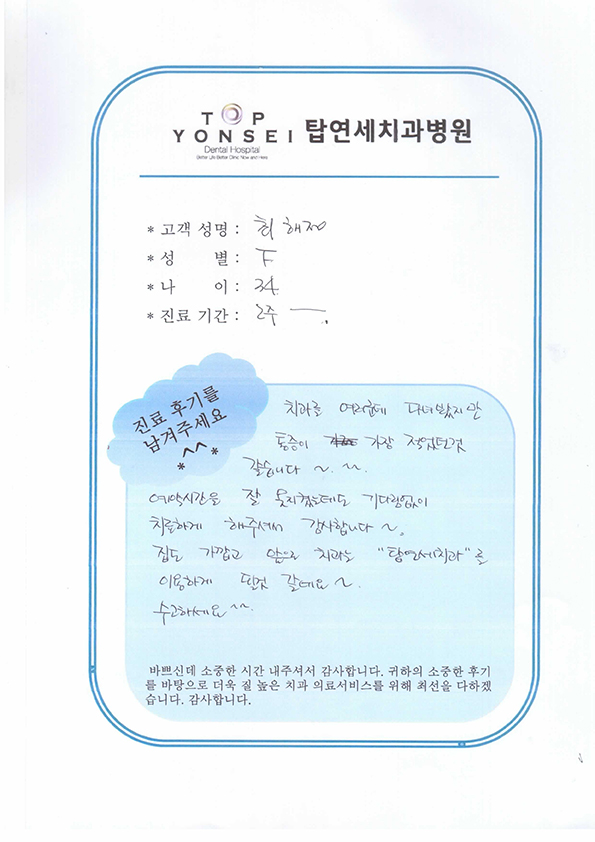 TOP
YONSEI 탑연세치과병원
Dental Hospital
Better Life Better Clinic Now and Here
* 고객 성명 : 최해정
* 성 별 : F
* 나 이 : 34
* 진료 기간 : 2주 ㅡ.
진료 후기를
남겨주세요
*^^*
치과를 여러군데 다녀봤지만
통증이 가장 적었던것
같습니다 ~. ^^.
예약시간을 잘 못지켰는데도 기다림없이
치료하게 해주셔서 감사합니다~.
집도 가깝고 앞으로 치과는 "탑연세치과"를
이용하게 될것 같네요~.
수고하세요^^.
바쁘신데 소중한 시간 내주셔서 감사합니다. 귀하의 소중한 후기
를 바탕으로 더욱 질 높은 치과 의료서비스를 위해 최선을 다하겠
습니다. 감사합니다.